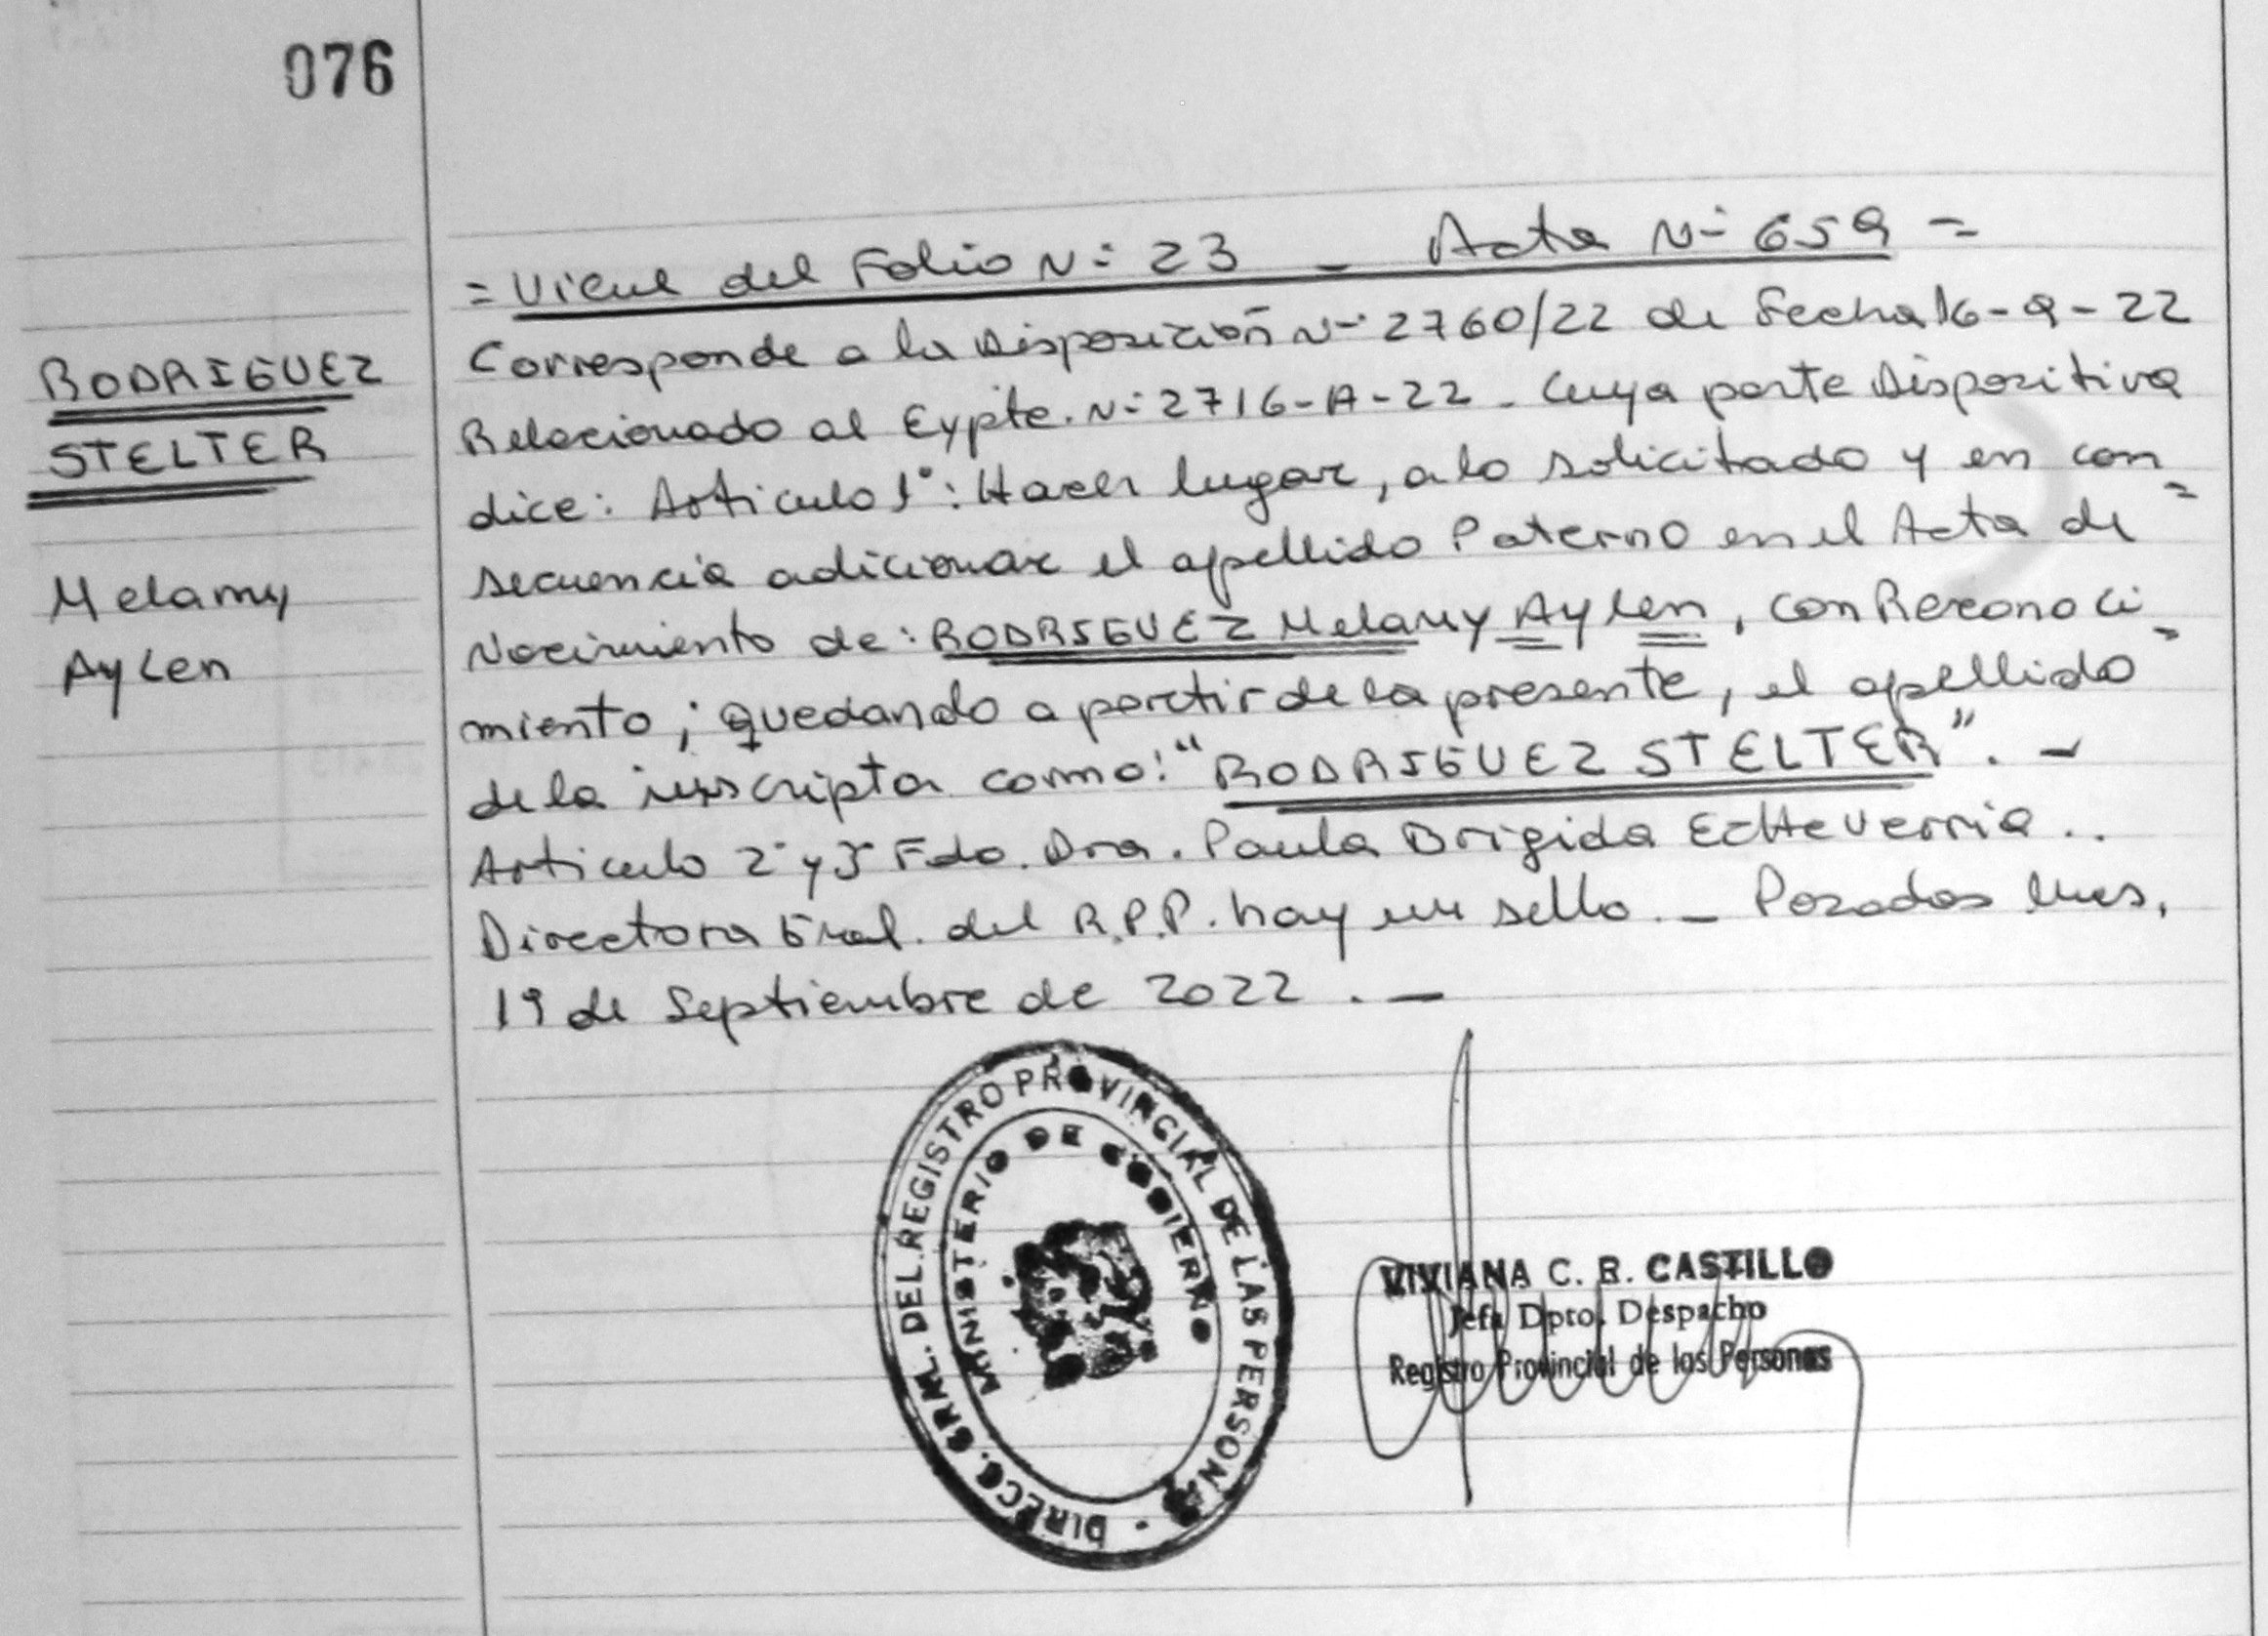 076
RODRIGUEZ
STELTER
Melamy
Aylen
= Viene del Folio N: 23 _ Acta N- 659 =
Corresponde a la Disposición N- 2760/22 de Fecha 16-9-22
Relacionado al Expte. N: 2716-A-22 - Cuya parte Dispositiva
dice: Articulo 1°: Hacer lugar, a lo solicitado y en con=
secuencia adicionar el apellido Paterno en el Acta de
Nacimiento de: RODRIGUEZ Melamy Aylen, con Reconoci=
miento; quedando a partir de la presente, el apellido
de la inscripta como: "RODRIGUEZ STELTER". -
Articulo 2° y 3° Fdo. Dra. Paula Brigida Echeverria..
Directora Gral. del R.P.P. hay un sello. _ Posadas Mnes,
19 de Septiembre de 2022. _
DIRECC. GRAL. DEL REGISTRO PROVINCIAL DE LAS PERSONAS
MINISTERIO DE GOBIERNO
VIVIANA C. R. CASTILLO
Jefa Dpto. Despacho
Registro Provincial de las Personas